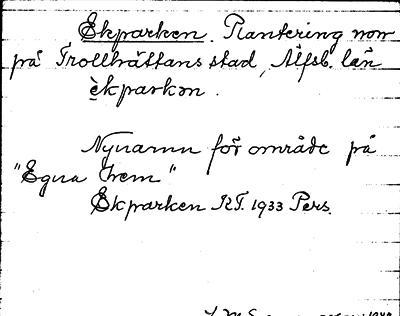 Ekparken. Plantering norr
på Trollhättans stad, Älfsb. län
èkparkən.
Nynamn för område på
"Egna Hem"
Ekparken KT. 1933 Pers.